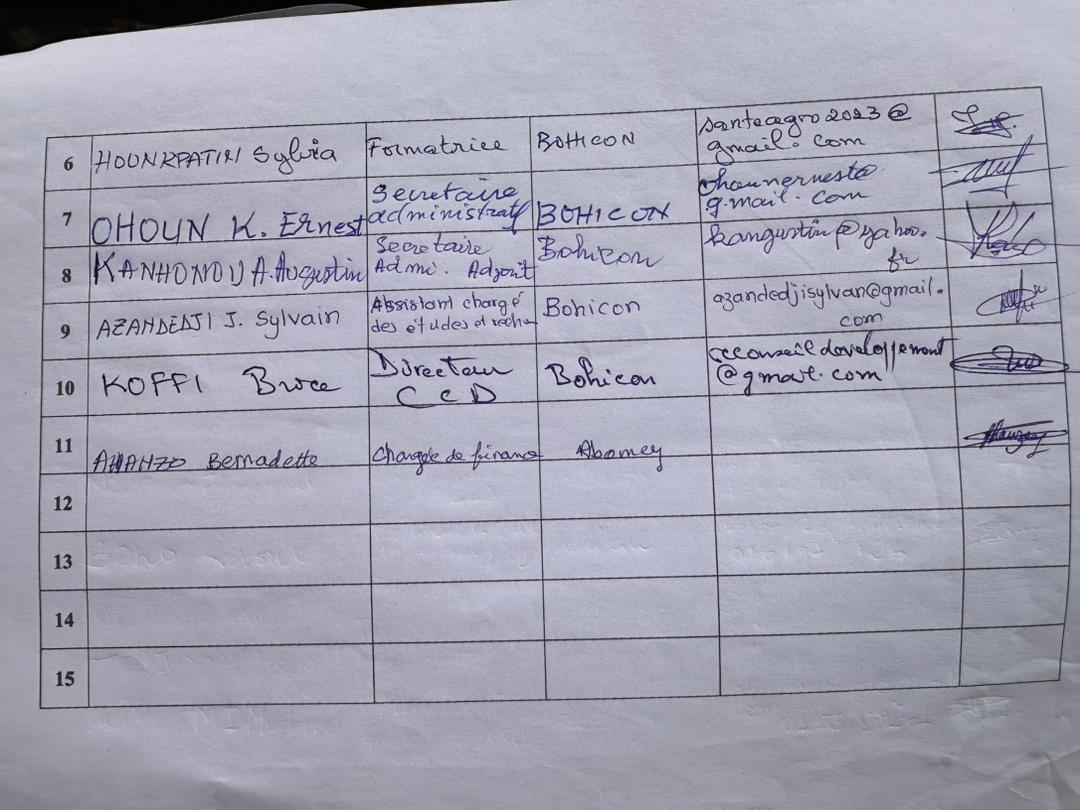 6 HOUNKPATIN Sylvia Formatrice BOHICON santeagro2023@
gmail.com
7 OHOUN K. Ernest Secretaire
administratif BOHICON
g.mail.com
8 KANHONOU A. Augustin Secretaire
Admi. Adjoit Bohicon kangustin@yahoo.
fr
9 AZANDEDJI J. Sylvain Assistant chargé
des études et reche Bohicon azandedjisylvan@gmail.
com
10 KOFFI Brice Directeur
CCD Bohicon ccconseildeveloppement
@gmail.com
11 AHANZO Bernadette Chargée de finance Abomey
12
13
14
15